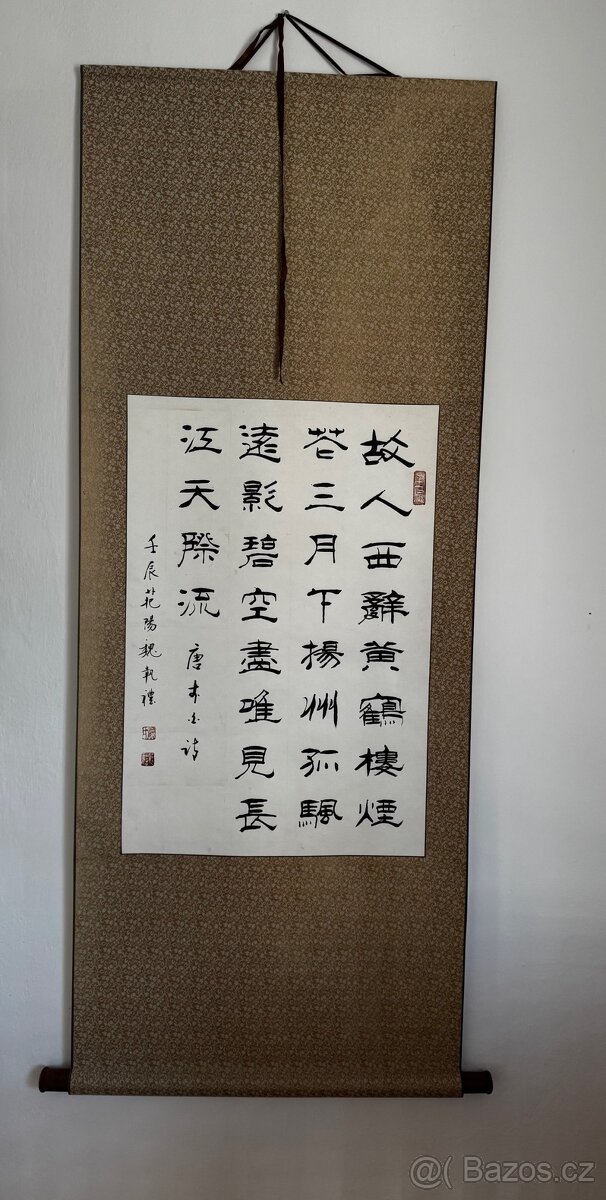 故人西辭黃鶴樓煙
花三月下揚州孤颿
遠影碧空盡唯見長
江天際流
唐李白詩
壬辰范陽魏執禮
@( Bazos.cz